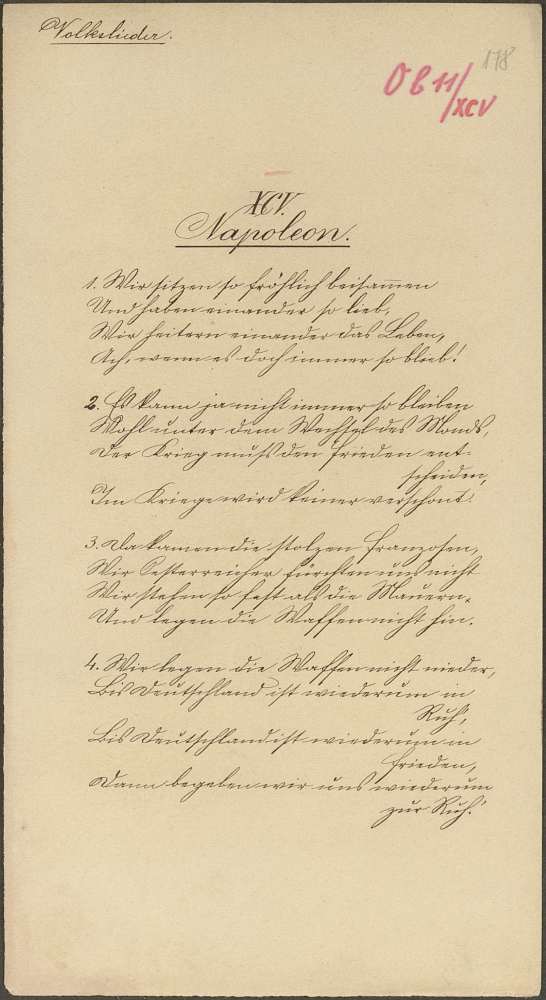 Volkslieder.
178
Ob 11/
XCV
XCV.
Napoleon.
1. Wir sitzen so fröhlich beisam̅en
Und haben einander so lieb,
Wir heitern einander das Leben,
Ach, wenn es doch immer so blieb!
2. Es kann ja nicht immer so bleiben
Wohl unter dem Wechsel des Monds,
Der Krieg muß den Frieden ent-
scheiden,
Im Kriege wird keiner verschont.
3. Da kamen die stolzen Franzosen,
Wir Oesterreicher fürchten uns nicht
Wir stehen so fest als die Mauern.
Und legen die Waffen nicht hin.
4. Wir legen die Waffen nicht nieder,
Bis Deutschland ist wiederum in
Ruh',
Bis Deutschland ist wiederum in
Frieden,
Dann begeben wir uns wiederum
zur Ruh'.